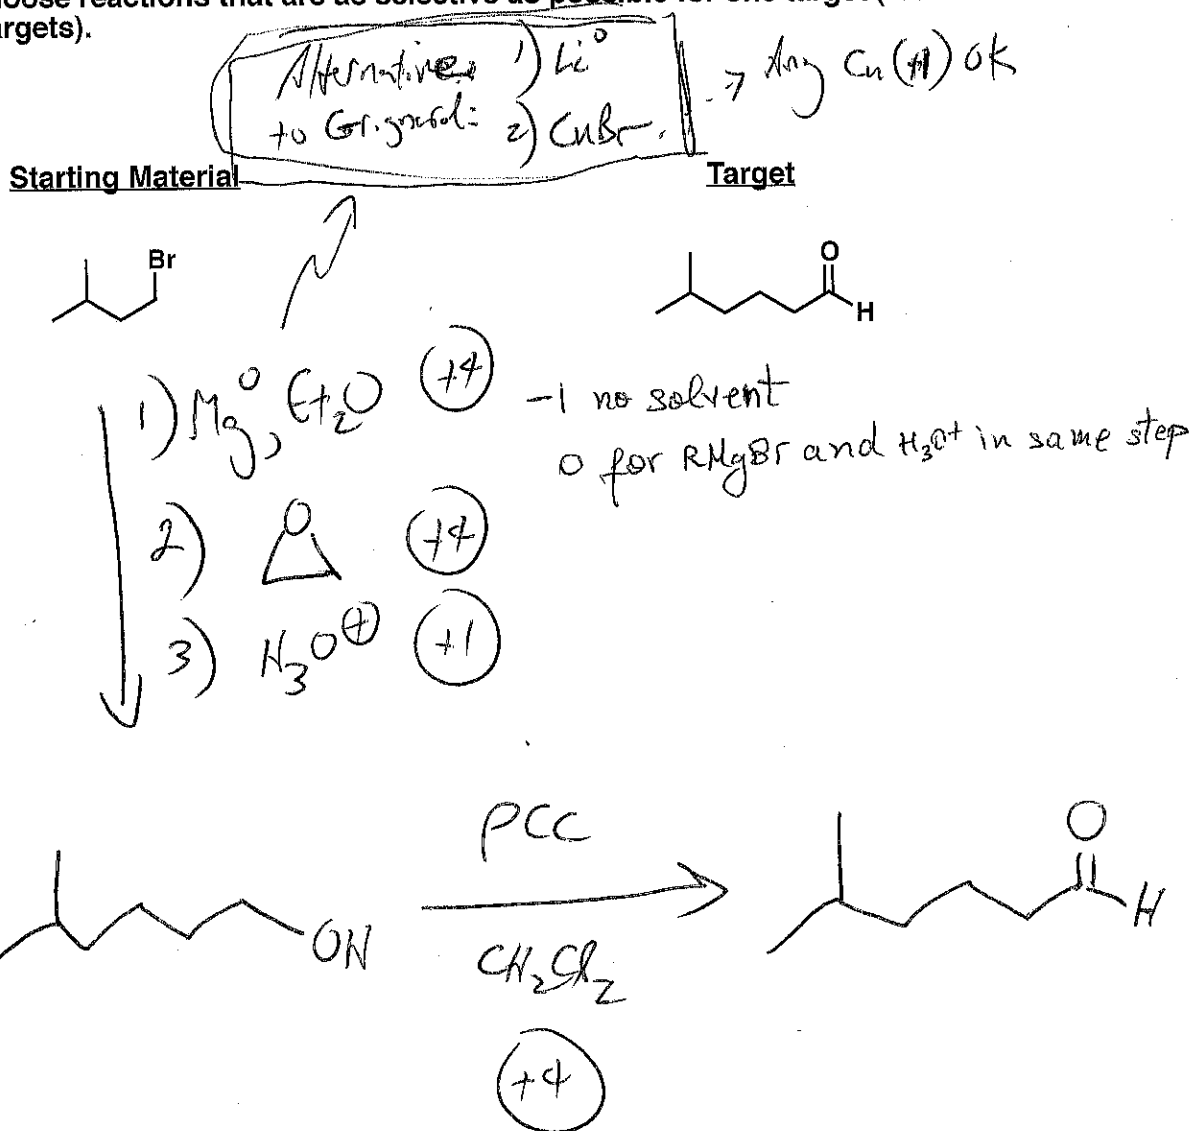 Alternatives 1) Li⁰
to Grignard: 2) CuBr.
→ Any Cu(+1) OK
Starting Material
Target
Br
O
H
1) Mg⁰, Et₂O +4
-1 no solvent
0 for RMgBr and H₃O⁺ in same step
2) O +4
3) H₃O⊕ +1
PCC
CH₂Cl₂
OH
O
H
+4